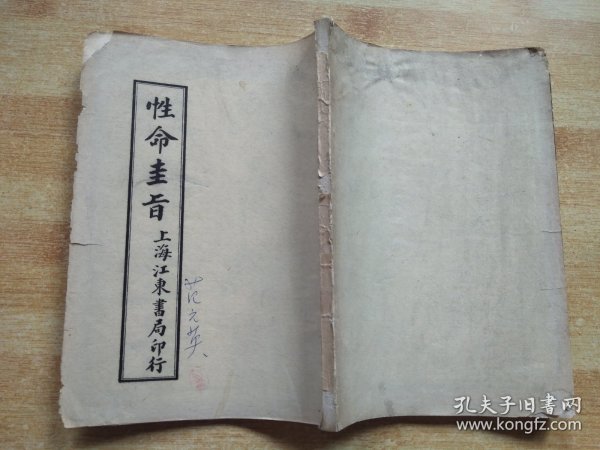 性命圭旨 上海江東書局印行
范之英、
孔夫子旧书网
www.kongfz.com